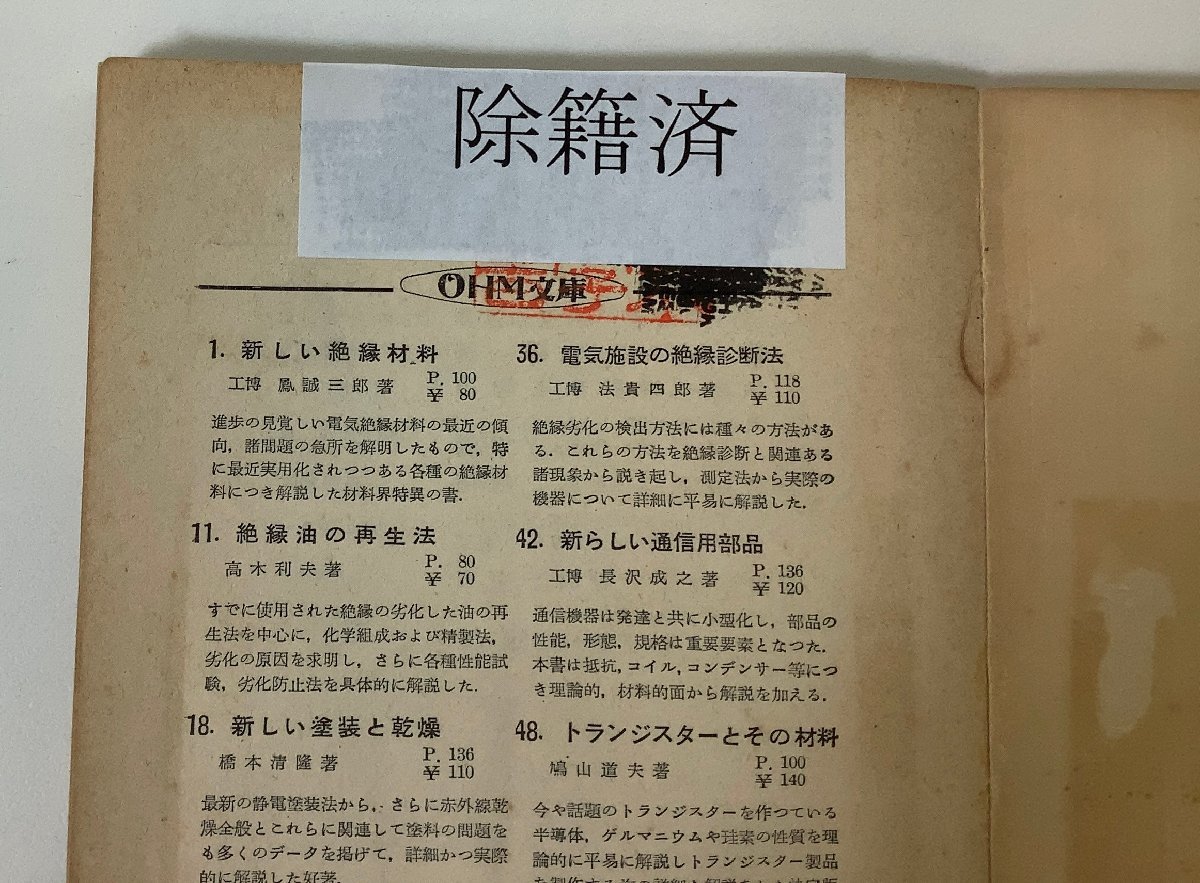 除籍済
OHM文庫
1. 新しい絶縁材料
工博 鳳誠三郎著 P. 100
¥ 80
進歩の見覚しい電気絶縁材料の最近の傾
向，諸問題の急所を解明したもので，特
に最近実用化されつつある各種の絶縁材
料につき解説した材料界特異の書．
11. 絶縁油の再生法
高木利夫著 P. 80
¥ 70
すでに使用された絶縁の劣化した油の再
生法を中心に，化学組成および精製法，
劣化の原因を求明し，さらに各種性能試
験，劣化防止法を具体的に解説した．
18. 新しい塗装と乾燥
橋本清隆著 P. 136
¥ 110
最新の静電塗装法から，さらに赤外線乾
燥全般とこれらに関連して塗料の問題を
も多くのデータを掲げて，詳細かつ実際
的に解説した好著．
36. 電気施設の絶縁診断法
工博 法貴四郎著 P. 118
¥ 110
絶縁劣化の検出方法には種々の方法があ
る．これらの方法を絶縁診断と関連ある
諸現象から説き起し，測定法から実際の
機器について詳細に平易に解説した．
42. 新らしい通信用部品
工博 長沢成之著 P. 136
¥ 120
通信機器は発達と共に小型化し，部品の
性能，形態，規格は重要要素となつた．
本書は抵抗，コイル，コンデンサー等につ
き理論的，材料的面から解説を加える．
48. トランジスターとその材料
鳩山道夫著 P. 100
¥ 140
今や話題のトランジスターを作つている
半導体，ゲルマニウムや珪素の性質を理
論的に平易に解説しトランジスター製品